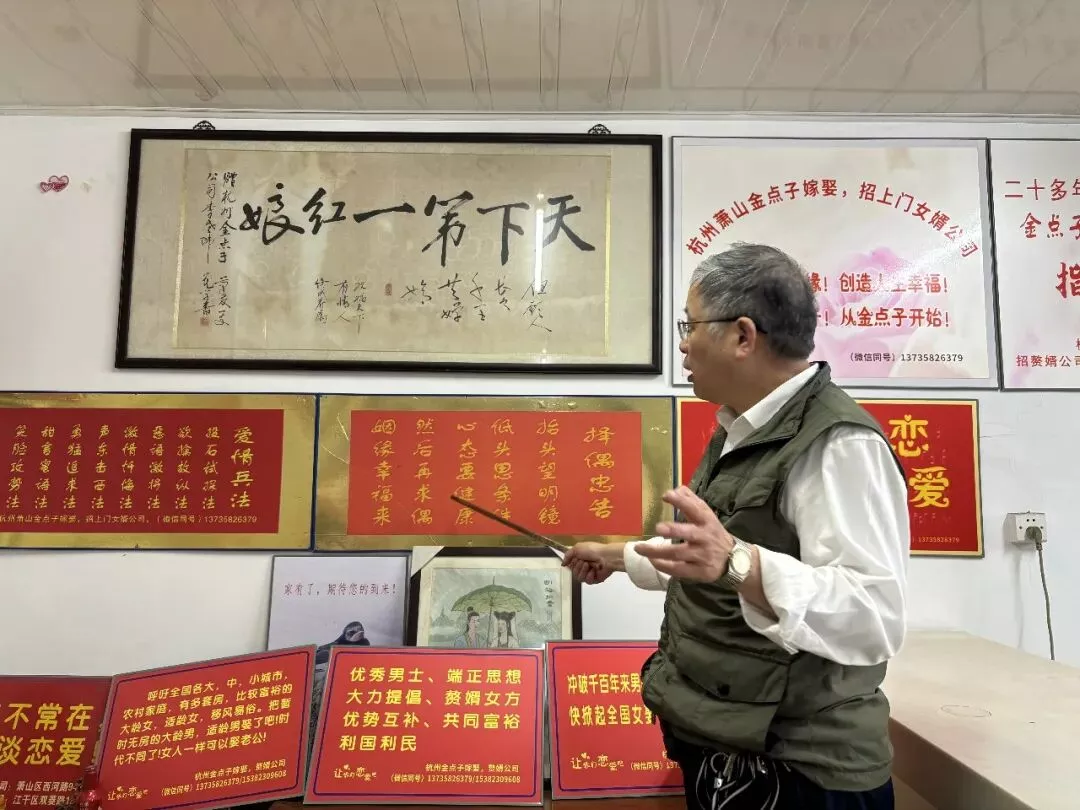 天下第一红娘
但愿人
长久
千里
共婵
娟
祝福天下
有情人
终成眷属
赠杭州金点子
杭州萧山金点子嫁娶，招上门女婿公司
缘！创造人生幸福！
！从金点子开始！
（微信同号）13735826379
二十多年
金点子
指
招赘婿公司
爱情兵法
投石试探法
欲擒故纵法
恶语激将法
激情忏悔法
声东击西法
勇猛追求法
甜言蜜语法
笑脸攻势法
杭州萧山金点子嫁娶，招上门女婿公司，（微信同号）13735826379
择偶忠告
抬头望明镜
低头思条件
心态要健康
然后再求偶
姻缘幸福来
恋
爱
13735826379
家有了，期待您的到来！
不常在
谈恋爱
司：萧山区西河路9
江干区双菱路1
呼吁全国各大，中，小城市，
农村家庭，有多套房，比较富裕的
大龄女，适龄女，移风易俗。把暂
时无房的大龄男，适龄男娶了吧！时
代不同了！女人一样可以娶老公！
杭州金点子嫁娶，赘婿公司
让你们恋爱吧
（微信同号）13735826379/15382309608
优秀男士、端正思想
大力提倡、赘婿女方
优势互补、共同富裕
利国利民
杭州金点子嫁娶，赘婿公司
让你们恋爱吧
（微信同号）13735826379/15382309608
冲破千百年来男
快掀起全国女
杭州金点子嫁娶，赘婿公司
让你们恋爱吧
（微信同号）137358263